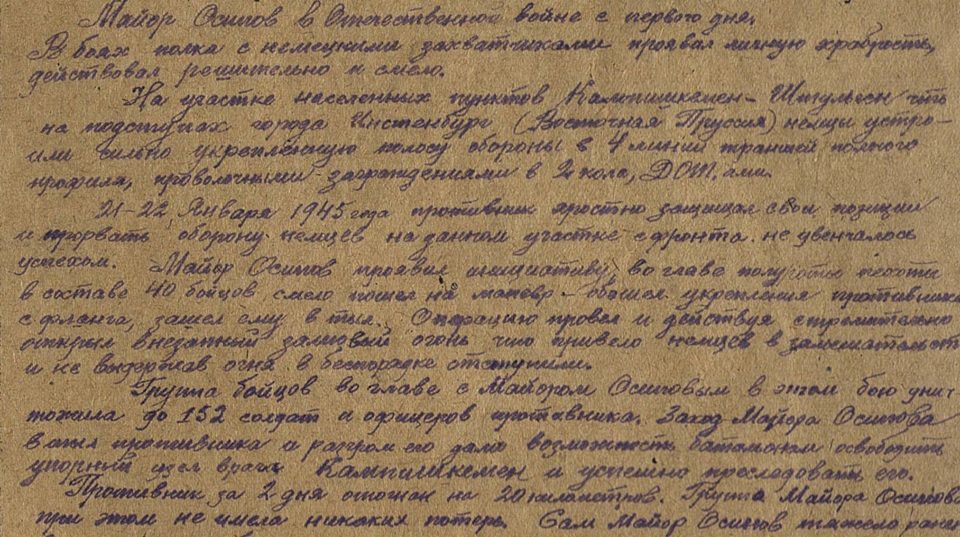 Майор Осипов в Отечественной войне с первого дня.
В боях полка с немецкими захватчиками проявил личную храбрость,
действовал решительно и смело.
На участке населенных пунктов Кампишкемен - что
на подступах города Инстенбург (Восточная Пруссия) немцы устро-
или сильно укрепленную полосу обороны в 4 линии траншей полного
профиля, проволочными заграждениями в 2 кола, ДОТ. ами.
21-22 Января 1945 года противник яростно защищал свои позиции
и прорвать оборону немцев на данном участке с фронта не увенчалось
успехом. Майор Осипов проявил инициативу, во главе полуроты пехоты
в составе 40 бойцов смело пошел на маневр - обошел укрепления противника
с фланга, зашел ему в тыл. Операцию провел и действуя стремительно
открыл внезапный залповый огонь что привело немцев в замешательст
и не выдержав огня в беспорядке отступили.
Группа бойцов во главе с Майором Осиповым в этом бою уни-
тожила до 152 солдат и офицеров противника. Заход Майора Осипова
в тыл противника и разгром его дало возможность батальонам освободить
упорный узел врага Кампишкемен и успешно преследовать его.
Противник за 2 дня отогнан на 20 километров. Группа Майора Осипова
при этом не имела никаких потерь. Сам Майор Осипов тяжело ранен